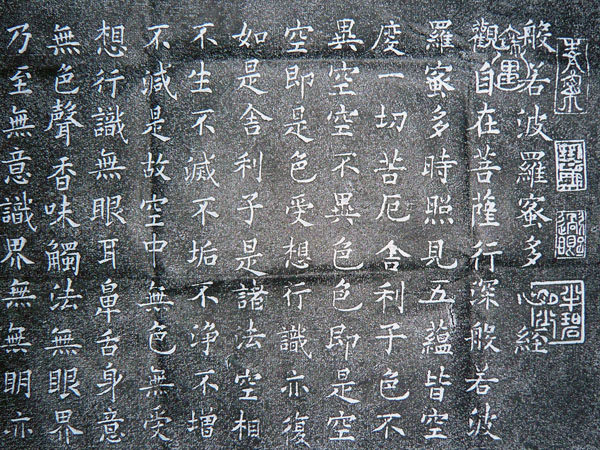 般若波羅蜜多心經
觀自在菩薩行深般若波
羅蜜多時照見五蘊皆空
度一切苦厄舍利子色不
異空空不異色色即是空
空即是色受想行識亦復
如是舍利子是諸法空相
不生不滅不垢不淨不增
不減是故空中無色無受
想行識無眼耳鼻舌身意
無色聲香味觸法無眼界
乃至無意識界無無明亦